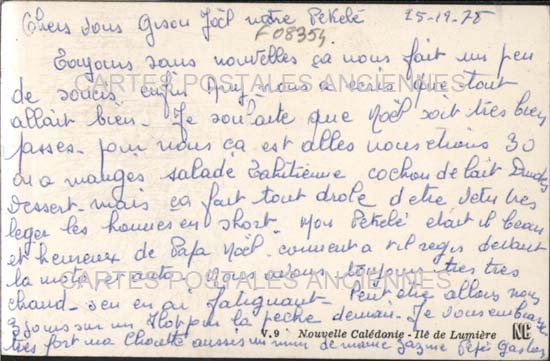 Chers vous Gisou Joël notre Pekelé 25-12-75
F08354
Toujours sans nouvelles ça nous fait un peu
CARTES POSTALES ANCIENNES
de soucis enfin nous a écris que tout
allait bien - Je souaite que Noël soit très bien
passer - pour nous ça est allés nous étions 30
on a mangés salade Tahitienne cochon de lait
Dessert - mais ça fait tout drole d'etre vetu très
leger les hommes en short - Mon Pekelé etait il beau
et heureux de Papa Noël - comment a t'il regis devant
la moto et auto - Nous avons toujours très très
CARTES POSTALES ANCIENNES
chaud - s'en en ai fatiguant - Peut etre allons nous
3 jours sur un pour la peche demain - Je vous embrasse
V.9 Nouvelle Calédonie - Ilé de Lumière NC
très fort ma Chouette aussi un de mamie